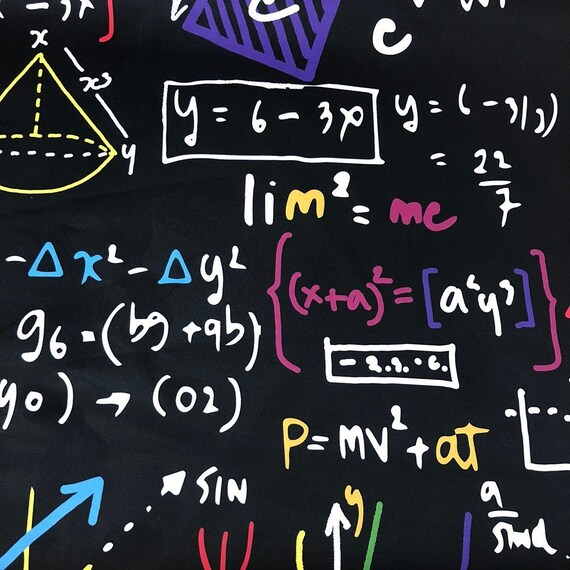 - 3x
c
x
x³
y
y = 6 - 3x
y = 6 - 3(3)
= 22/7
lim² = mc
-Δx² - Δy²
{(x+a)² = [a²y³]}
g6 = (bg + qb)
- 2.2. - 6.
yo) → (02)
P = MV² + at
SIN
y